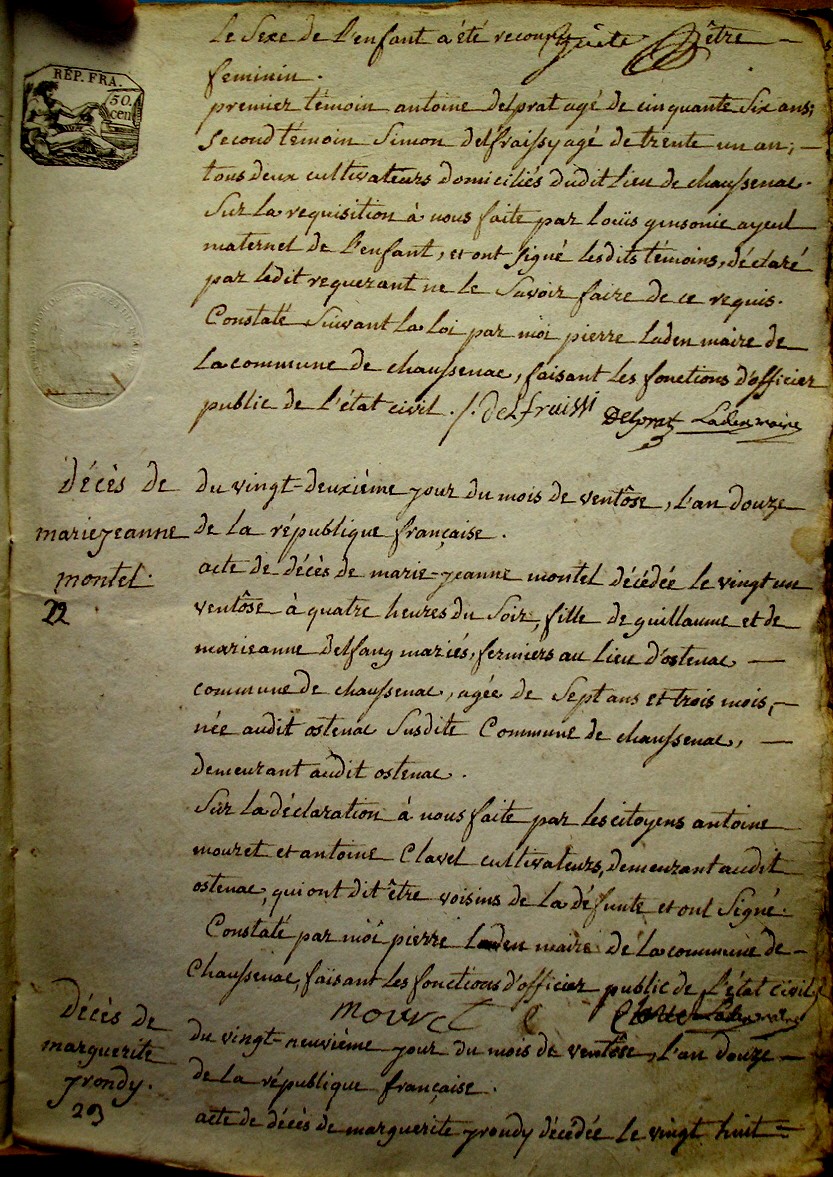 le Sexe de l'enfant a été reconnu être
feminin.
REP. FRA.
50.
cen
premier témoin antoine delprat agé de cinquante six ans;
second témoin Simon delfraissy agé de trente un an;
tous deux cultivateurs domiciliés dudit lieu de chaussenac.
Sur la requisition à nous faite par louis ginsonie ayeul
maternel de l'enfant, et ont signé lesdits témoins, déclaré
par ledit requerant ne le Savoir faire de ce requis.
Constaté Suivant la loi par moi pierre laden maire de
la commune de chaussenac, faisant les fonctions d'officier
public de l'état civil. S. delfraissi Delprat Laden maire
décès de
marie jeanne
montel.
22
du vingt-deuxième jour du mois de ventôse, l'an douze
de la république française.
acte de décès de marie-jeanne montel décédée le vingt un
ventôse à quatre heures du Soir, fille de guillaume et de
marieanne delfau mariés, fermiers au lieu d'ostenac
commune de chaussenac, agée de Sept ans et trois mois,
née audit ostenac Susdite Commune de chaussenac,
demeurant audit ostenac.
Sur la déclaration à nous faite par les citoyens antoine
mouret et antoine Clavel cultivateurs, demeurant audit
ostenac, qui ont dit être voisins de la défunte et ont Signé.
Constaté par moi pierre laden maire de la commune de
Chaussenac, faisant les fonctions d'officier public de l'état civil
mouret Laden maire
décès de
marguerite
yrondy.
23
du vingt-neuvième jour du mois de ventôse, l'an douze
de la république française.
acte de décès de marguerite yrondy décédée le vingt huit